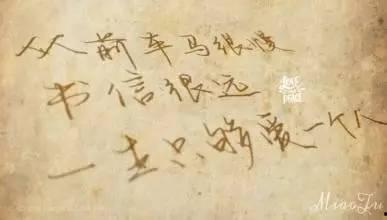 从前车马很慢
书信很远
LOVE
PEACE
一生只够爱一个人
MiaoFu